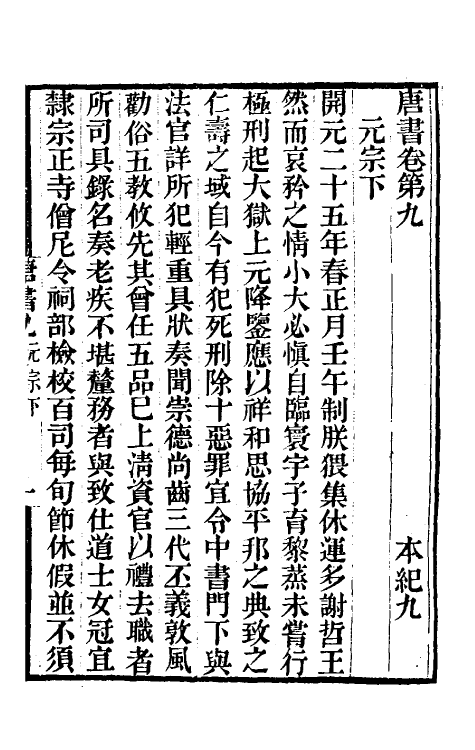 唐書卷第九　本紀九
元宗下
開元二十五年春正月壬午制朕猥集休運多謝哲王
然而哀矜之情小大必愼自臨寰宇子育黎蒸未嘗行
極刑起大獄上元降鑒應以祥和思協平邦之典致之
仁壽之域自今有犯死刑除十惡罪宜令中書門下與
法官詳所犯輕重具狀奏聞崇德尚齒三代丕義敦風
勸俗五教攸先其曾任五品巳上淸資官以禮去職者
所司具錄名奏老疾不堪釐務者與致仕道士女冠宜
隸宗正寺僧尼令祠部檢校百司每旬節休假並不須
唐書九元宗下　一